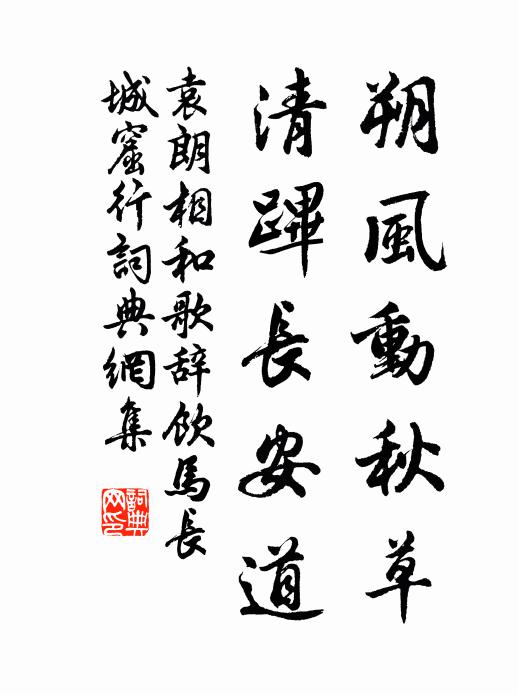 朔風動秋草
清蹕長安道
袁朗相和歌辞飲馬長
城窟行詞典網集
詞典
网印